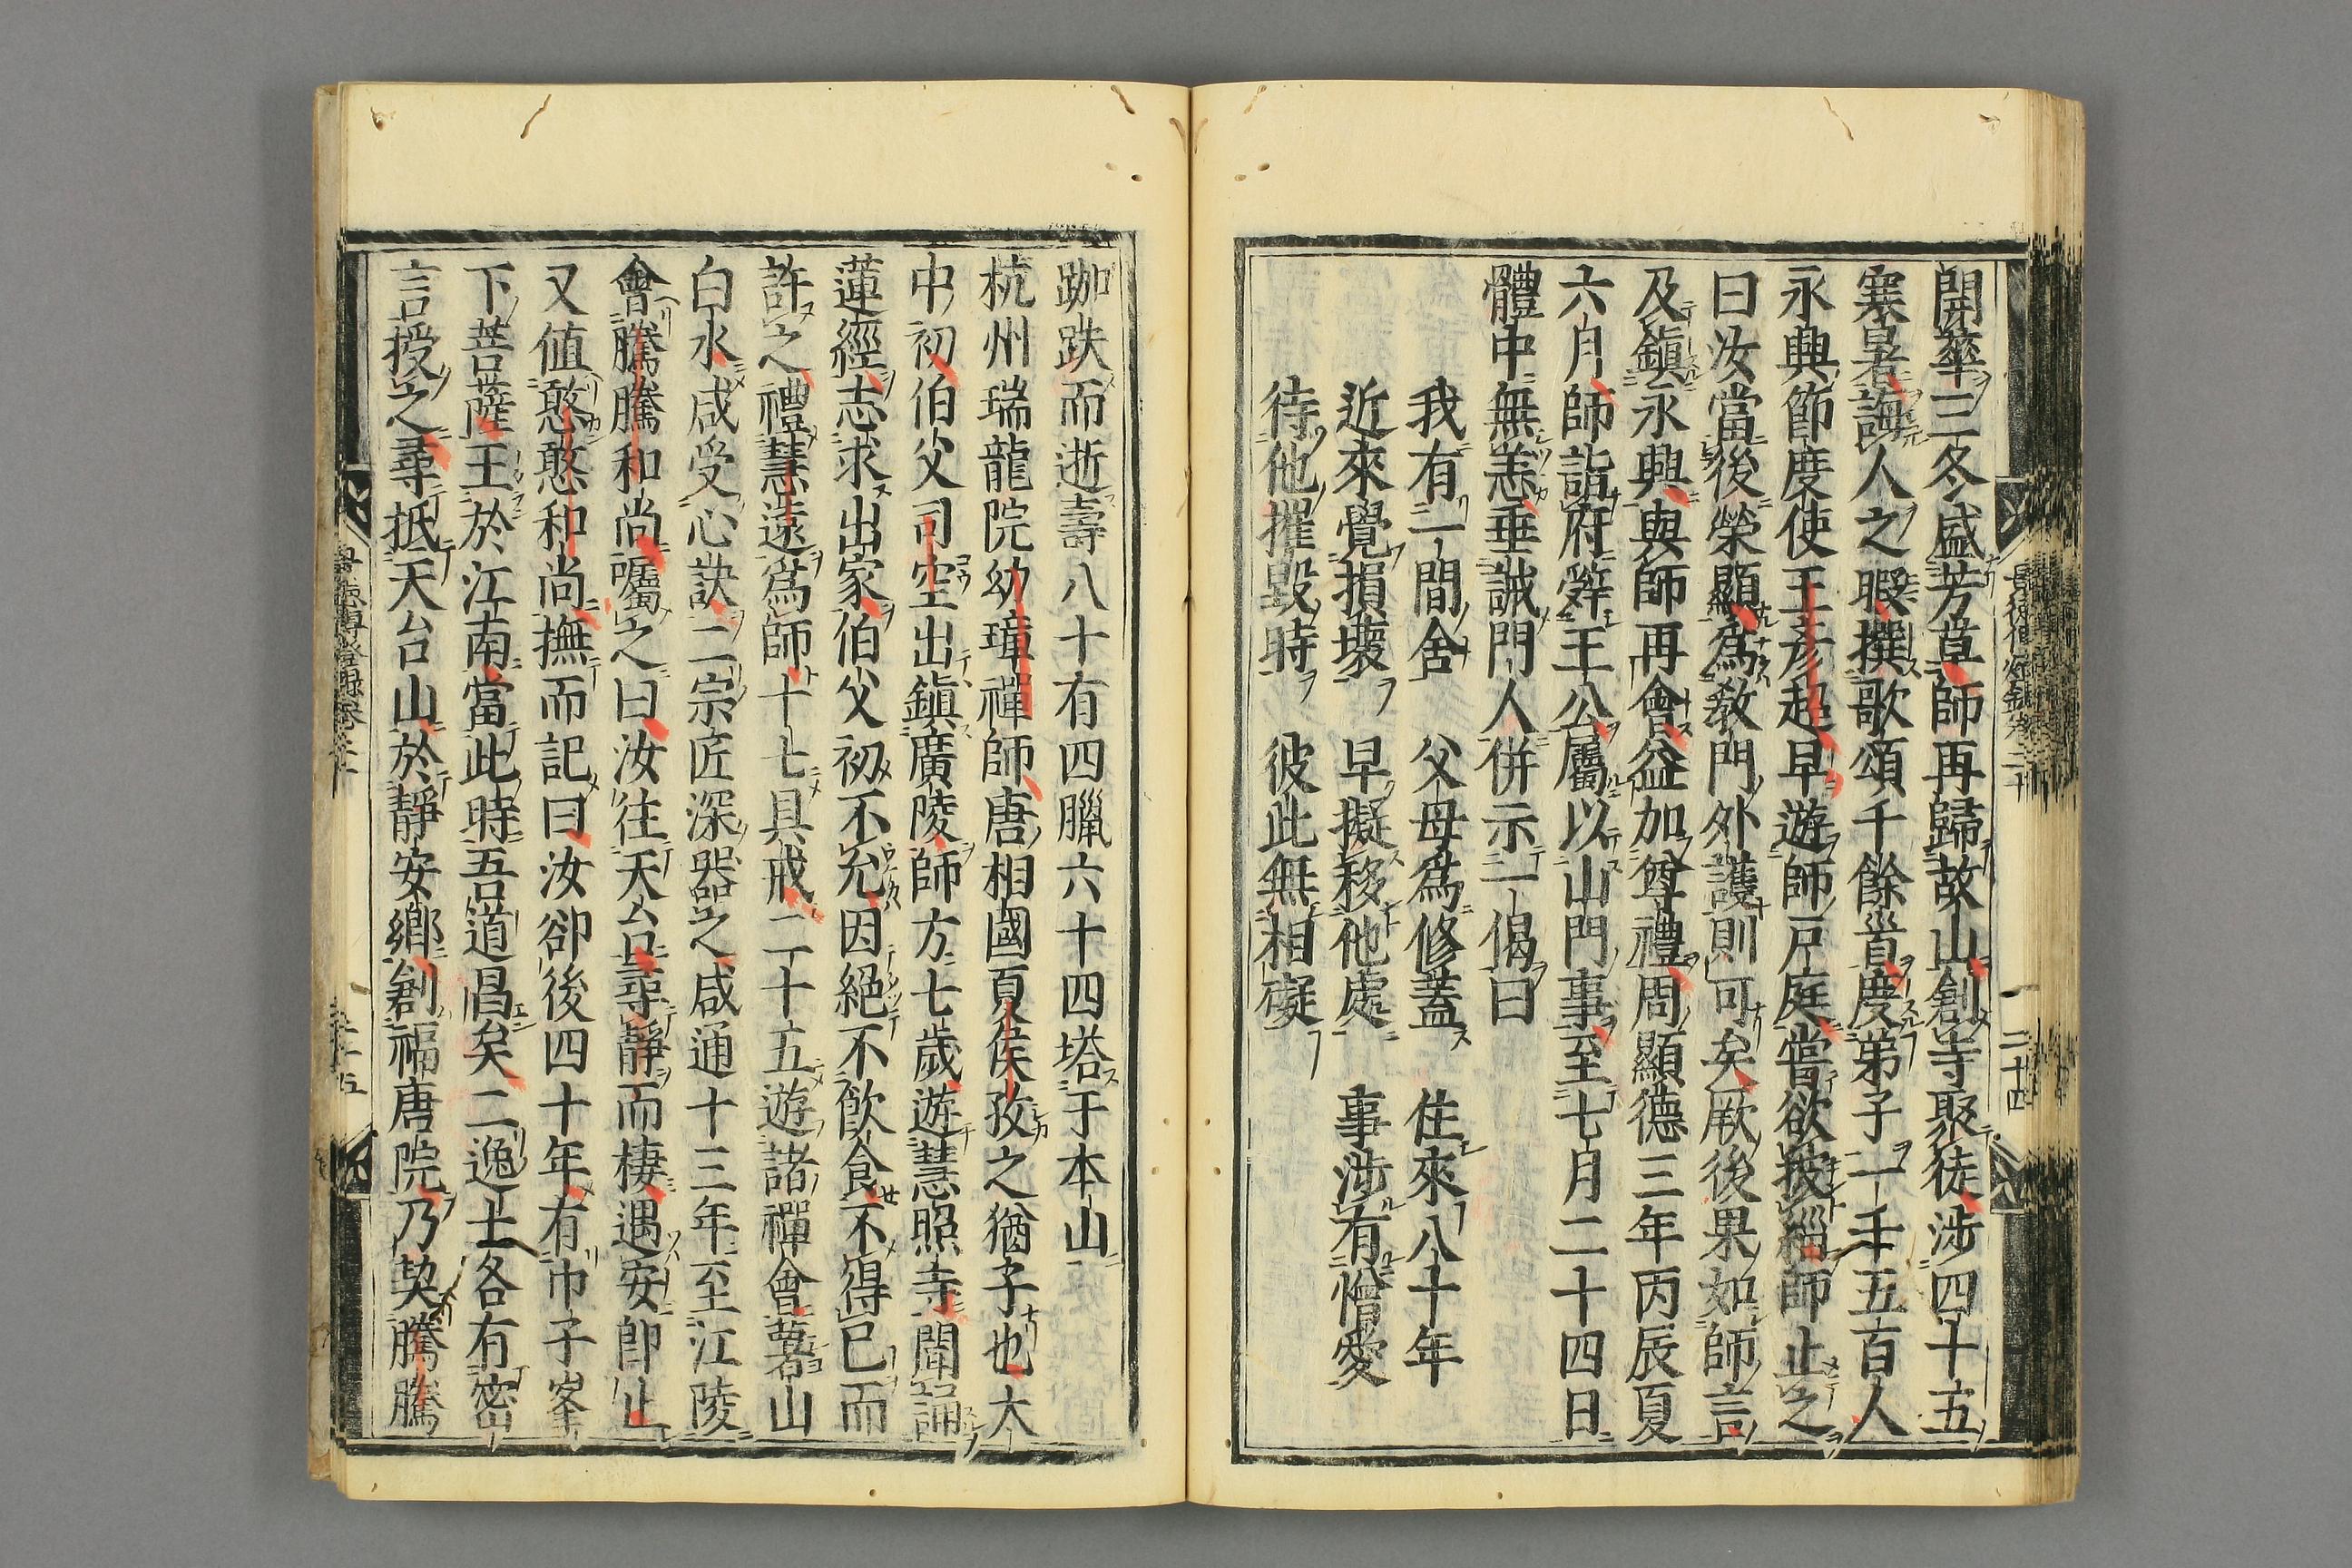 開華三冬盛芳草師再歸故山創寺聚徒涉四十五
寒暑誨人之暇撰歌頌千餘首度弟子一千五百人
永興節度使王彥超早遊師戸庭嘗欲披緇師止之
曰汝當後榮顯爲教門外護則可矣厥後果如師言
及鎭永興與師再會益加尊禮周顯德三年丙辰夏
六月師詣府辭王公屬以山門事至七月二十四日
體中無恙垂誡門人併示一偈曰
我有一間舍　父母爲修蓋　住來八十年
近來覺損壞　早擬移他處　事涉有憎愛
待他摧毀時　彼此無相礙
跏趺而逝壽八十有四臘六十四塔于本山
杭州瑞龍院幼璋禪師唐相國夏侯孜之猶子也大
中初伯父司空出鎭廣陵師方七歲遊慧照寺聞誦
蓮經志求出家伯父初不允因絕不飲食不得已而
許之禮慧遠爲師十七具戒二十五遊諸禪會薯山
白水咸受心訣二宗匠深器之咸通十三年至江陵
會騰騰和尚囑之曰汝往天台尋靜而棲遇安卽止
又値憨憨和尚撫而記曰汝卻後四十年有巾子峯
下菩薩王於江南當此時吾道昌矣二逸士各有密
言授之尋抵天台山於靜安鄉創福唐院乃契騰騰